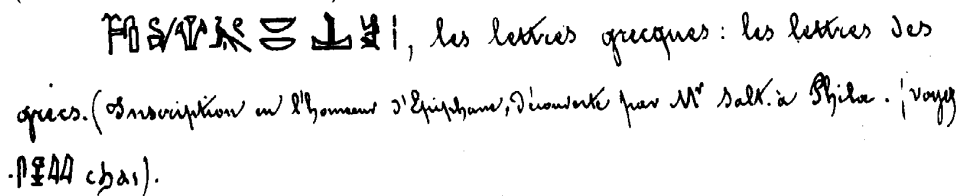 , les lettres grecques : les lettres des
grecs. (Inscription en l'honneur d'Epiphane, découverte par Mr Salt. à Philae. (voyez
chai).